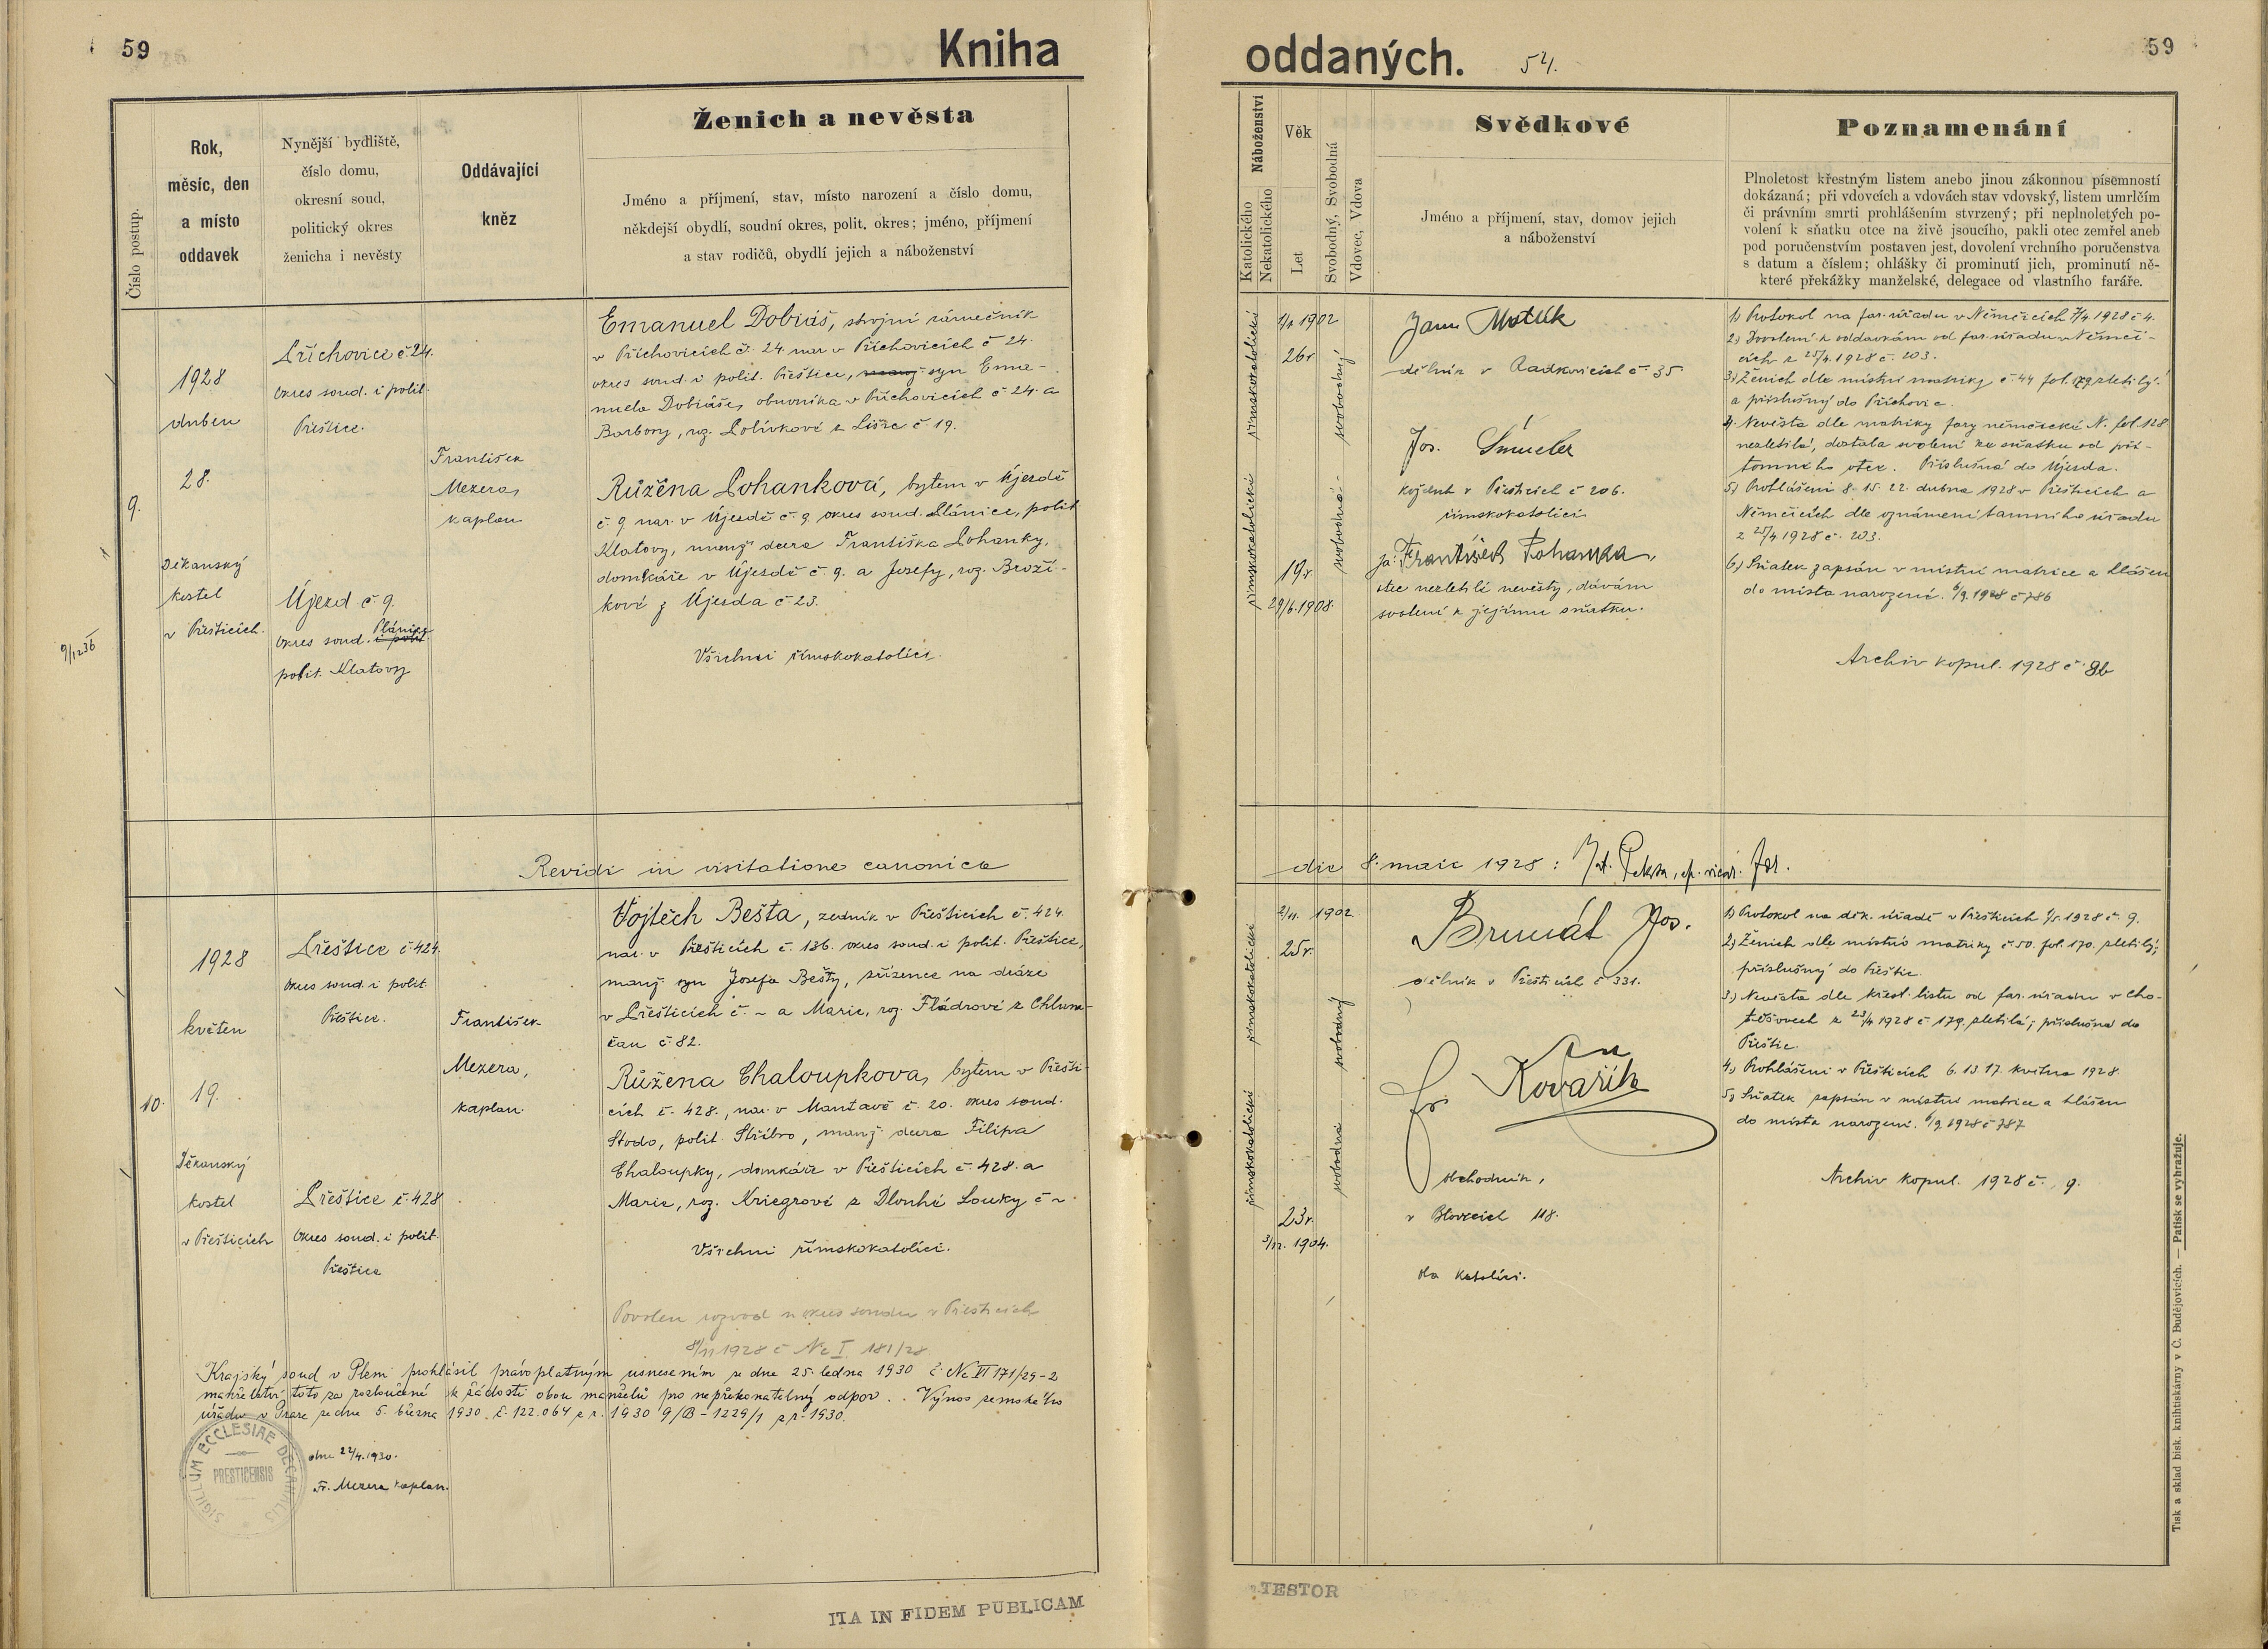 59
Kniha
oddaných.
54.
59
Číslo postup.
Rok,
měsíc, den
a místo
oddavek
Nynější bydliště,
číslo domu,
okresní soud,
politický okres
ženicha i nevěsty
Oddávající
kněz
Ženich a nevěsta
Jméno a příjmení, stav, místo narození a číslo domu,
někdejší obydlí, soudní okres, polit. okres; jméno, příjmení
a stav rodičů, obydlí jejich a náboženství
Náboženství
Katolického
Nekatolického
Věk
Let
Svobodný, Svobodná
Vdovec, Vdova
Svědkové
Jméno a příjmení, stav, domov jejich
a náboženství
Poznamenání
Plnoletost křestným listem anebo jinou zákonnou písemností
dokázaná; při vdovcích a vdovách stav vdovský, listem umrlčím
či právním smrti prohlášením stvrzený; při neplnoletých po-
volení k sňatku otce na živě jsoucího, pakli otec zemřel aneb
pod poručenstvím postaven jest, dovolení vrchního poručenstva
s datum a číslem; ohlášky či prominutí jich, prominutí ně-
které překážky manželské, delegace od vlastního faráře.
9.
1928
duben
28.
Děkanský
kostel
v Přešticích.
Příchovice č. 24.
okres soud. i polit.
Přeštice.
Újezd č. 9.
okres soud. Plánice
polit. Klatovy
František
Mezera,
kaplan
Emanuel Dobiáš, strojní zámečník
v Příchovicích č. 24. nar. v Příchovicích č 24.
okres soud. i polit. Přeštice, syn Ema-
nuela Dobiáše, obuvníka v Příchovicích č 24. a
Barbory, roz. Polívkové z Lišic č. 19.
Růžena Pohanková, bytem v Újezdě
č. 9. nar. v Újezdě č. 9. okres soud. Plánice, polit.
Klatovy, manž. dcera Františka Pohanky,
domkáře v Újezdě č. 9. a Josefy, roz. Broží-
kové z Újezda č. 23.
Všichni římskokatolíci.
římskokatolické
římskokatolické
1902
26r
19r.
29/6.1908.
svobodný
svobodná
Jan
dělník v Radkovicích č. 35
Jos.
v Přešticích č 206.
římskokatolíci
já: František Pohanka,
otec nezletilé nevěsty, dávám
svolení k jejímu sňatku.
1) Protokol na far. úřadu v Němčicích 7/4 1928 č 4.
2) Dovolení k oddavkám od far. úřadu v Němči-
cích z 25/4 1928 č. 203.
3) Ženich dle místní matriky č. 44 fol. zletilý
a příslušný do Příchovic.
4. Nevěsta dle matriky fary němčické N. fol. 128
nezletilá, dostala svolení ke sňatku od pří-
tomného otce. Příslušná do Újezda.
5) Prohlášeni 8. 15. 22. dubna 1928 v Přešticích a
Němčicích dle oznámení tamního úřadu
z 25/4 1928 č. 203.
6) Sňatek zapsán v místní matrice a hlášen
do místa narození. 6/9. 1928 č 786
Archiv kopul. 1928 č 8b
Revidi in visitatione canonica
die 8. maii 1928:
10.
1928
květen
19.
Děkanský
kostel
v Přešticích
Přeštice č 424.
okres soud. i polit.
Přeštice.
Přeštice č. 428
okres soud. i polit.
Přeštice
František
Mezera,
kaplan.
Vojtěch Bešta, zedník v Přešticích č. 424.
nar. v Přešticích č. 136. okres soud. i polit. Přeštice,
manž. syn Josefa Bešty, zřízence na dráze
v Přešticích č. ~ a Marie, roz. Fládrové z Chlum-
čan č 82.
Růžena Chaloupkova, bytem v Přešti-
cích č. 428., nar. v Mantavě č. 20. okres soud.
Stodo, polit. Stříbro, manž. dcera Filipa
Chaloupky, domkáře v Přešticích č. 428. a
Marie, roz. Kriegrové z Dlouhé Louky č ~
Všichni římskokatolíci.
římskokatolické
římskokatolické
2/11. 1902.
25r.
23r.
1904.
svobodný
svobodná
Jos.
dělník v Přešticích č 331.
Fr. Kovařík
obchodník,
v Blovicích 118.
oba katolíci.
1) Protokol na děk. úřadě v Přešticích 1/5. 1928 č. 9.
2) Ženich dle místní matriky č 50. fol. 170. zletilý,
příslušný do Přeštic.
3) Nevěsta dle křest. listu od far. úřadu v Cho-
těšovech z 23/4 1928 č 179. zletilá, příslušná do
Přeštic.
4) Prohlášeni v Přešticích 6. 13. 17. května 1928.
5) Sňatek zapsán v místní matrice a hlášen
do místa narození. 6/9. 1928 č 787
Archiv kopul. 1928 č. 9.
Povolen rozvod u okres soudu v Přešticích
1928 č Nc I 181/28
Krajský soud v Plzni prohlásil právoplatným usnesením ze dne 25. ledna 1930 č. Nc VI 171/29-2
manželství toto za rozloučené k žádosti obou manželů pro nepřekonatelný odpor. Výnos zemského
úřadu v Praze ze dne 5. března 1930 č. 122.064 z r. 1930 9/B-1229/1 z r. 1930.
dne 22/4. 1930.
Fr. Mezera kaplan.
SIGILLUM ECCLESIAE DECANALIS
PRESTICENSIS
ITA IN FIDEM PUBLICAM
TESTOR
Tisk a sklad bisk. knihtiskárny v Č. Budějovicích. — Patisk se vyhražuje.